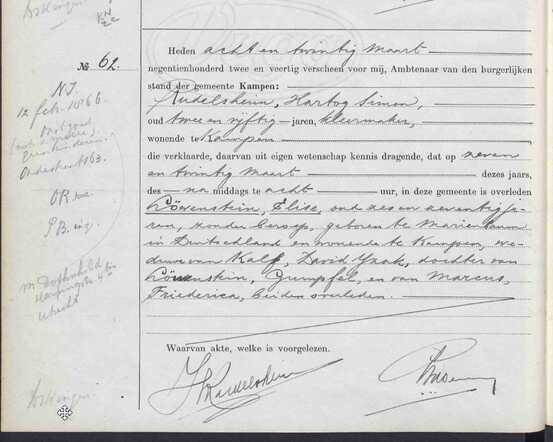 № 62.
N.I.
12 feb. 1866
OR
P.B. ing.
Utrecht
Heden acht en twintig Maart
negentienhonderd twee en veertig verscheen voor mij, Ambtenaar van den burgerlijken
stand der gemeente Kampen:
Rudelsheim, Hartog Simon,
oud twee en vijftig jaren, kleermaker,
wonende te Kampen
die verklaarde, daarvan uit eigen wetenschap kennis dragende, dat op zeven
en twintig Maart dezes jaars,
des na middags te acht uur, in deze gemeente is overleden
Löwenstein, Elise, oud zes en zeventig ja-
ren, zonder beroep, geboren te
in Duitschland en wonende te Kampen, we-
duwe van Kalf, David Izak, dochter van
Löwenstein, Gumpfel, en van Marcus,
Friederica, beiden overleden.
Waarvan akte, welke is voorgelezen.
HRudelsheim